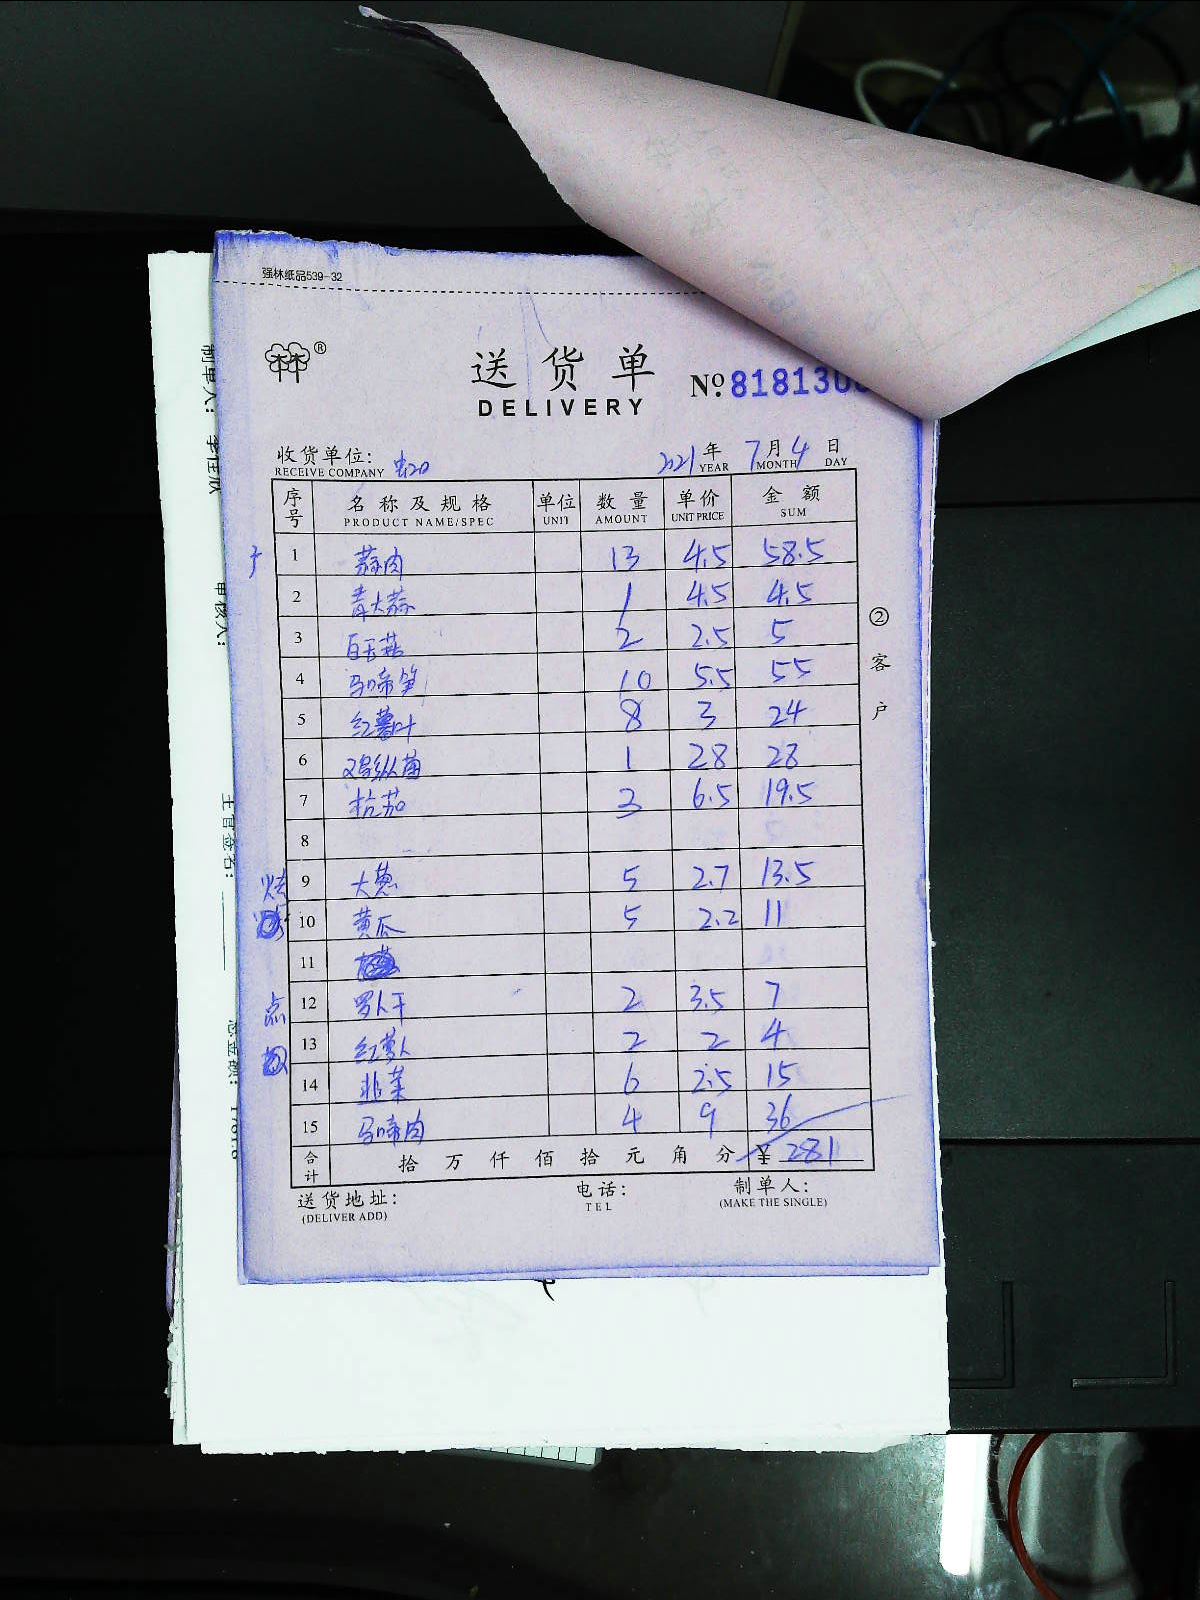 强林纸品539-32
®
送货单
DELIVERY
№. 818130
收货单位: 2021年 7月4日
RECEIVE COMPANY YEAR MONTH DAY
序号 名称及规格 单位 数量 单价 金额
PRODUCT NAME/SPEC UNIT AMOUNT UNIT PRICE SUM
1 蒜肉 13 4.5 58.5
2 青大蒜 1 4.5 4.5
3 2 2.5 5
4 马啼笋 10 5.5 55
5 红薯叶 8 3 24
6 鸡纵菌 1 28 28
7 杭茄 3 6.5 19.5
8
9 大葱 5 2.7 13.5
10 黄瓜 5 2.2 11
11
点 12 罗卜干 2 3.5 7
13 红萝卜 2 2 4
14 韭菜 6 2.5 15
15 马啼肉 4 9 36
合计 拾万仟佰拾元角分 ¥ 281
送货地址: 电话: 制单人:
(DELIVER ADD) TEL (MAKE THE SINGLE)
②客户
制单人:
审核人:
主管签名:
总金额: